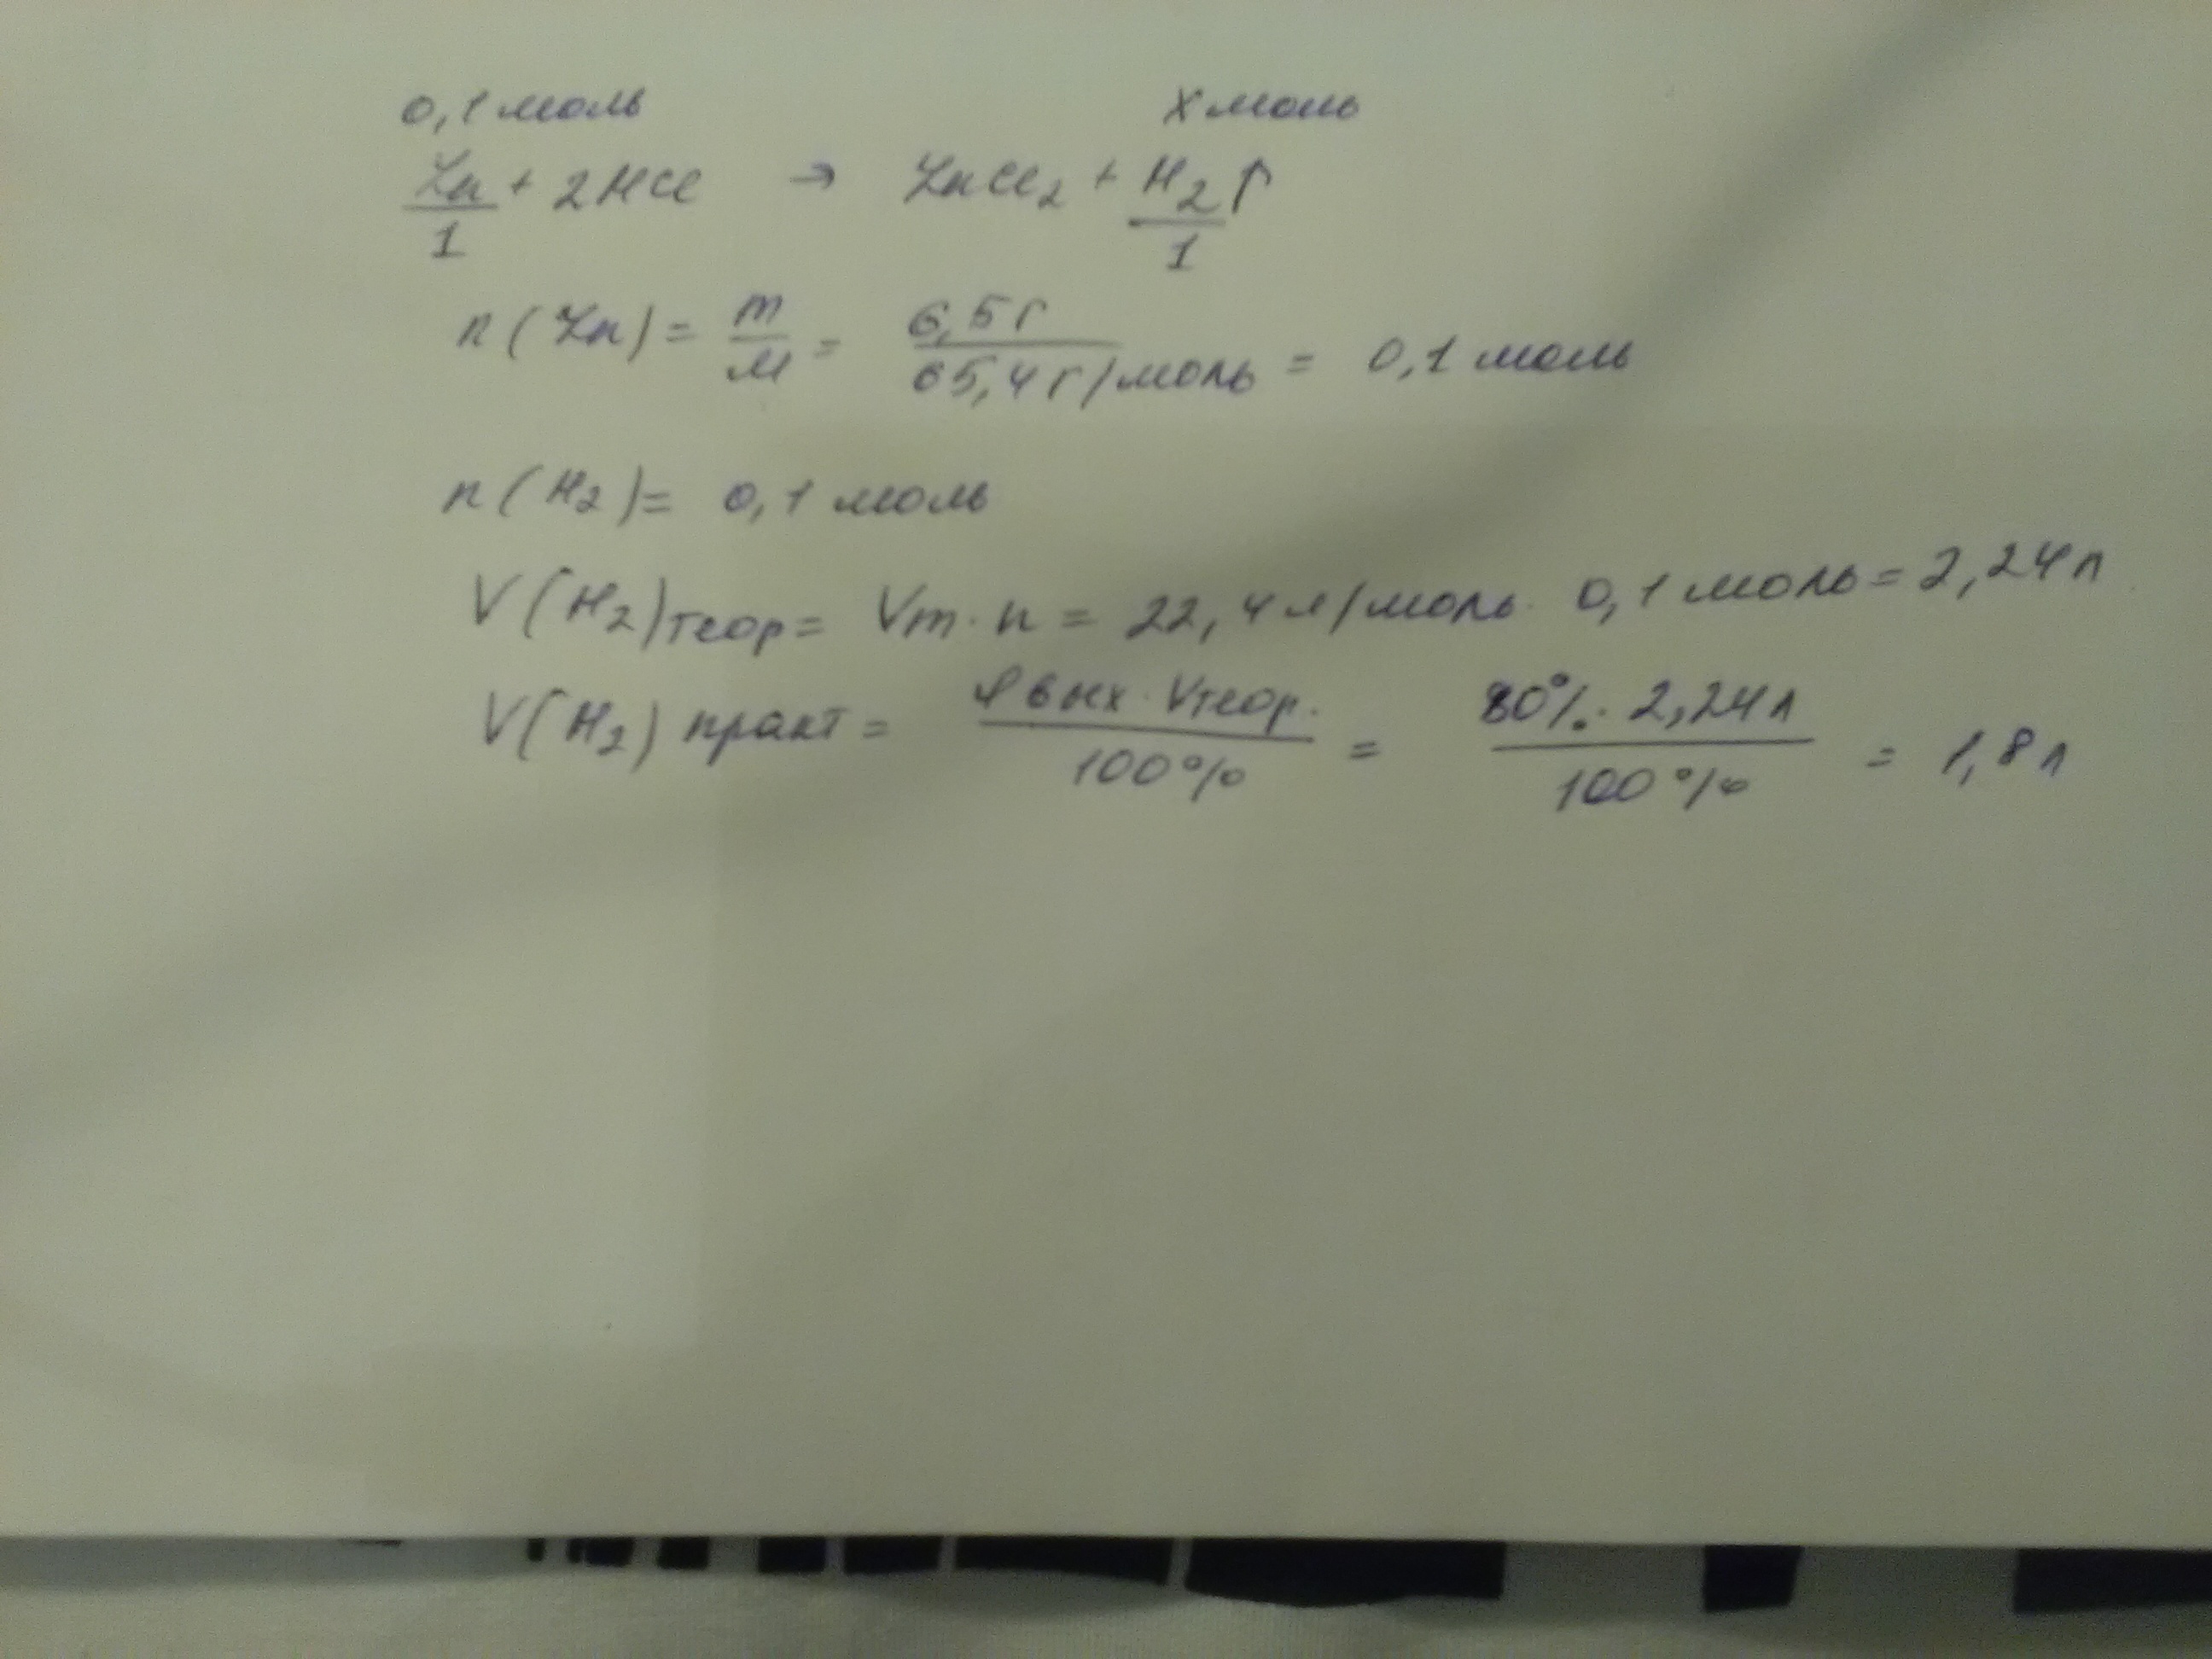 0,1 моль х моль
Zn + 2HCl → ZnCl₂ + H₂↑
1 1
n(Zn) = m/M = 6,5 г / 65,4 г/моль = 0,1 моль
n(H₂) = 0,1 моль
V(H₂)теор = Vm · n = 22,4 л/моль · 0,1 моль = 2,24 л
V(H₂) практ = φвых · Vтеор. / 100% = 80% · 2,24 л / 100% = 1,8 л